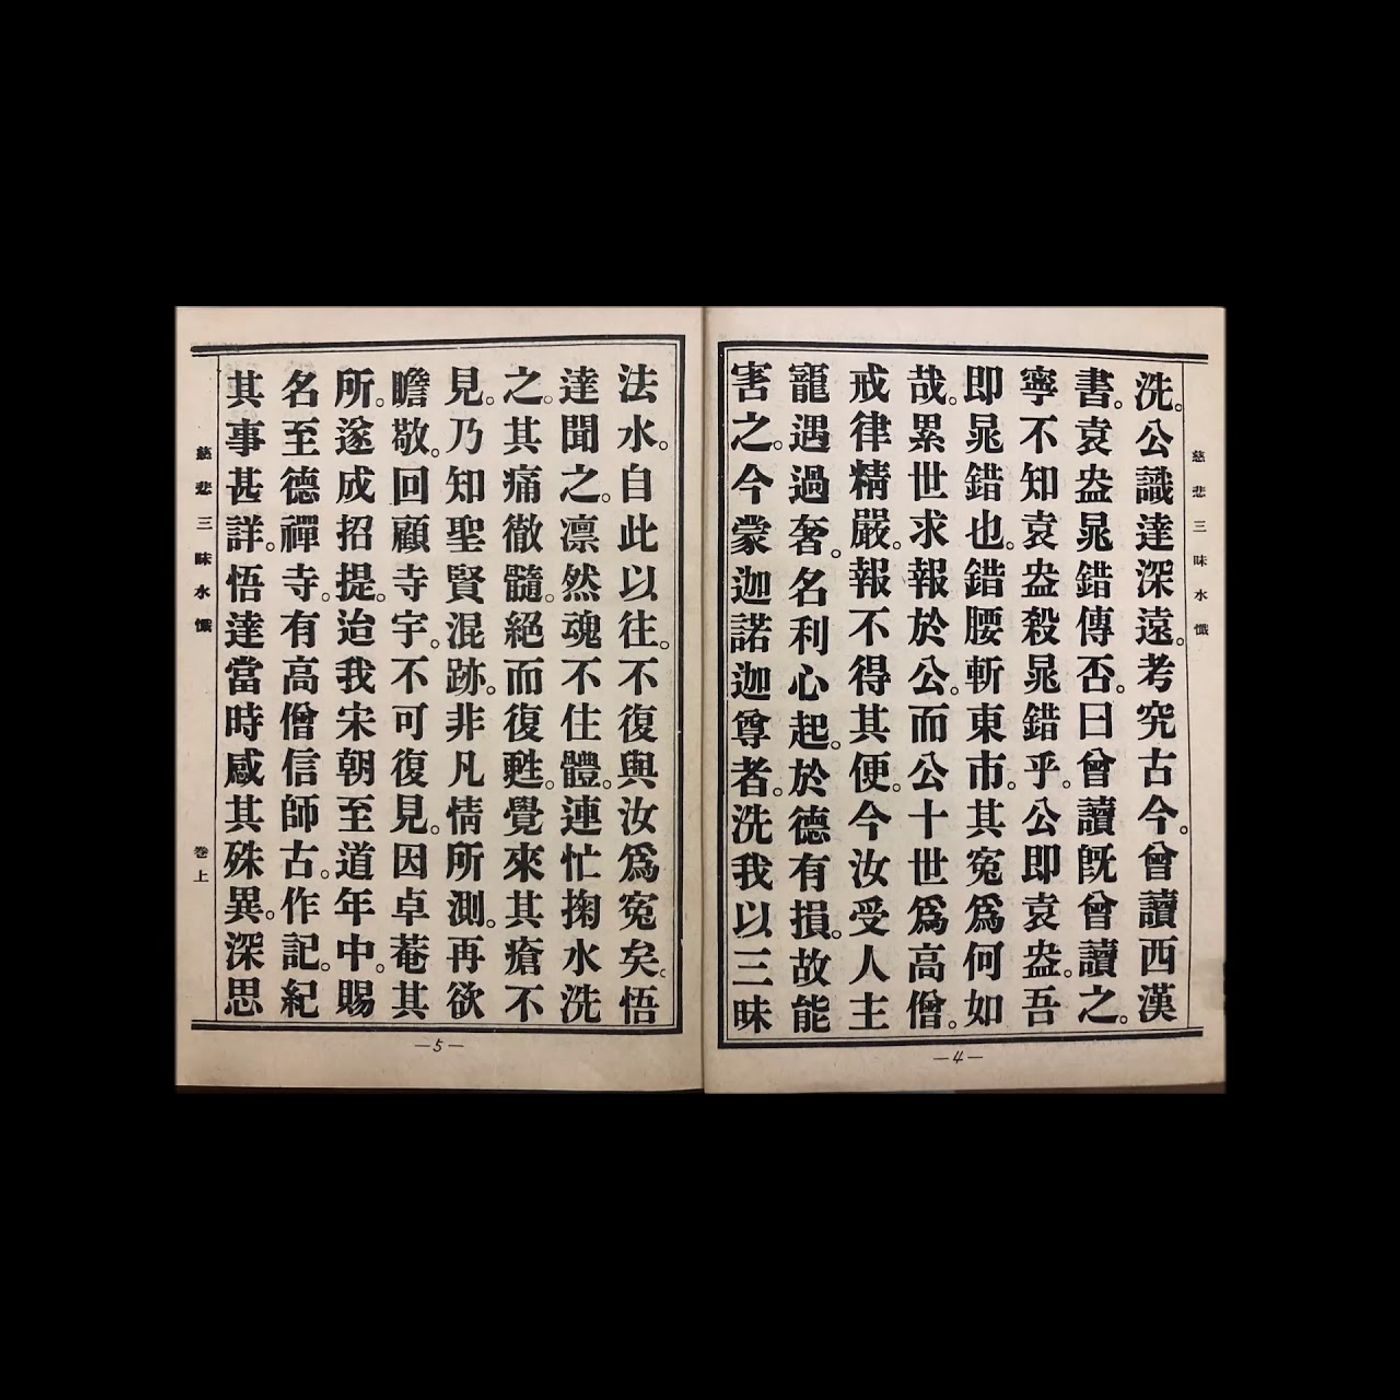 慈悲三昧水懺
洗。公識達深遠。考究古今。曾讀西漢
書。袁盎晁錯傳否。曰曾讀既曾讀之。
寧不知袁盎殺晁錯乎。公即袁盎。吾
即晁錯也。錯腰斬東市。其寃爲何如
哉。累世求報於公。而公十世爲高僧。
戒律精嚴。報不得其便。今汝受人主
寵遇過奢。名利心起。於德有損。故能
害之。今蒙迦諾迦尊者。洗我以三昧
—4—
法水。自此以往。不復與汝爲寃矣。悟
達聞之。凛然魂不住體。連忙掬水洗
之。其痛徹髓。絕而復甦。覺來其瘡不
見。乃知聖賢混跡。非凡情所測。再欲
瞻敬。回顧寺宇。不可復見。因卓菴其
所。遂成招提。迨我宋朝至道年中。賜
名至德禪寺。有高僧信師古。作記。紀
其事甚詳。悟達當時感其殊異。深思
慈悲三昧水懺 卷上
—5—